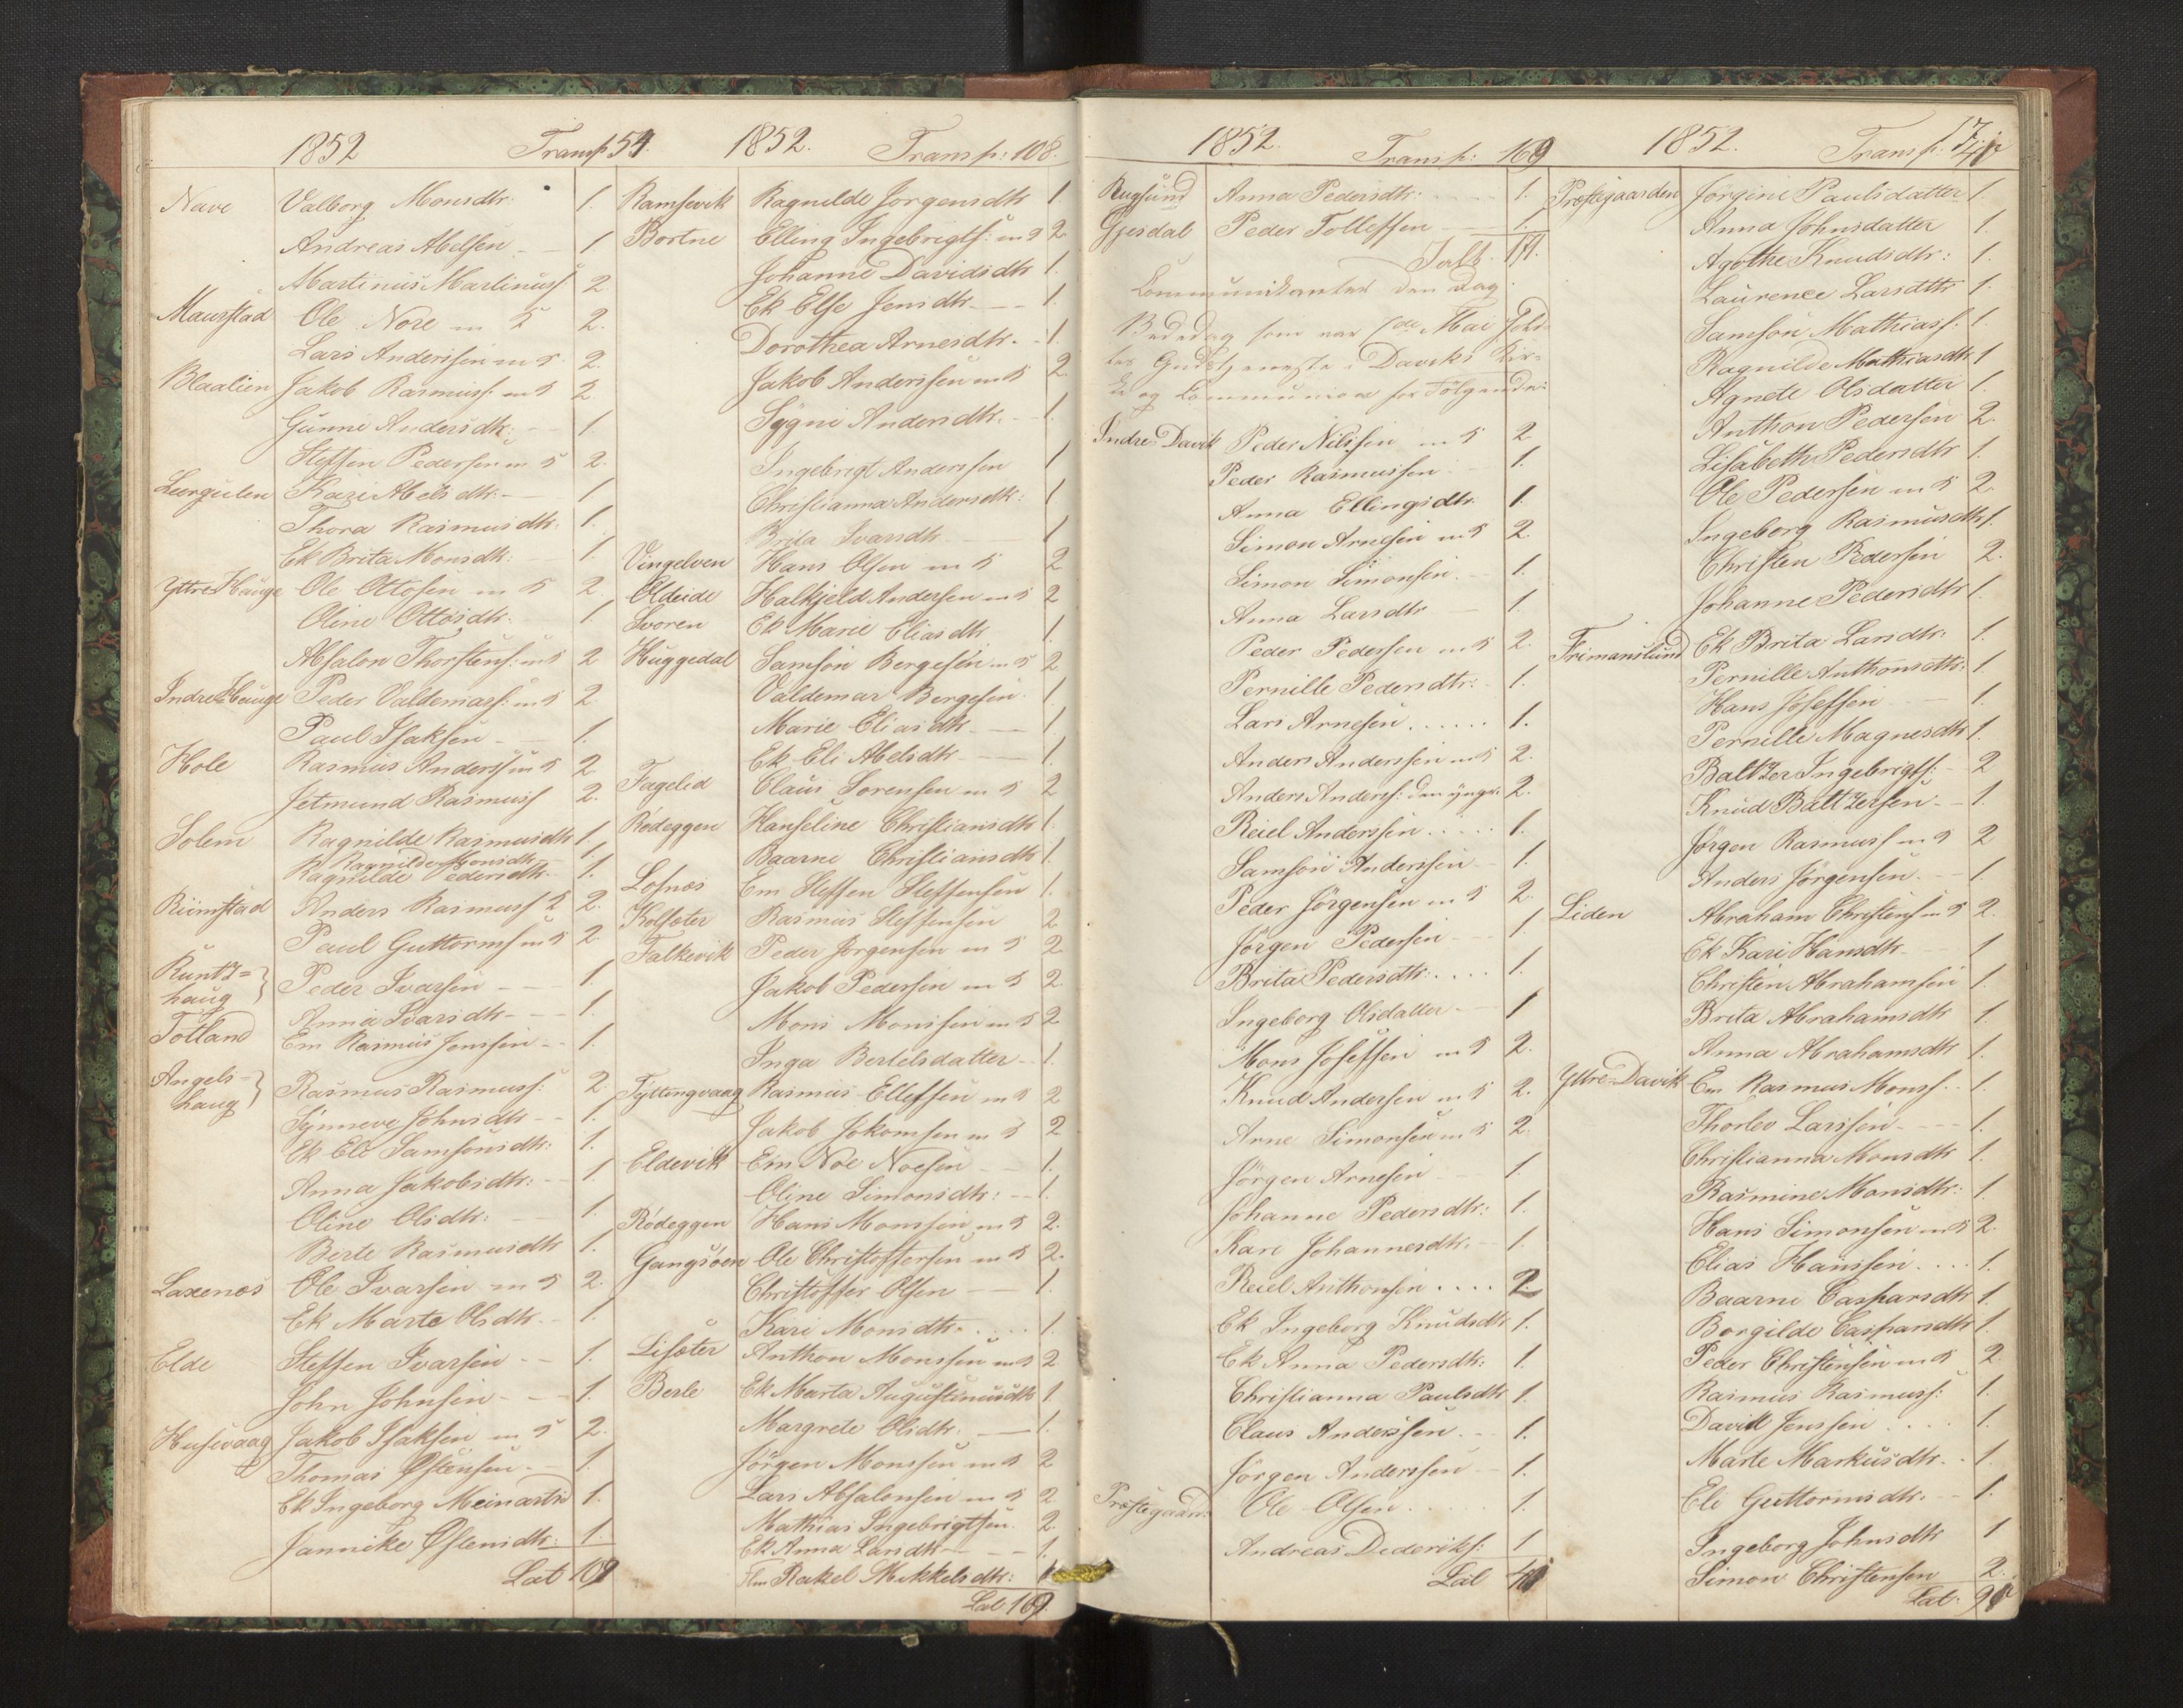 1852 Transp 54.
Nave Valborg Monsdtr: 1.
Andreas Abelsen 1
Martinus Martinuss 2
Maurstad Ole Nore m 5 2.
Lars Anderssen m 5 2.
Blaalien Jakob Rasmuss m 5 2
Gunne Andersdtr: 1.
Steffen Pedersen m 5 2.
Leergulen Kari Abelsdtr: 1
Thora Rasmusdtr. 1.
Ek Brita Monsdtr: 1.
Yttre Hauge Ole Ottosen m 5 2.
Oline Ottosdtr. 1
Absalon Thorstens: m 5 2
Indre Hauge Peder Valdemars: m 5 2
Paul Isaksen 1.
Hole Rasmus Anderss m 5 2
Jetmund Rasmuss 2.
Solem Ragnilde Rasmusdtr 1.
Ragnilde Monsdtr. 1.
Ragnilde Pedersdtr. 1.
Rimstad Anders Rasmuss 5 2.
Paul Guttorms m 5 2
Runtz=
haug } Peder Ivarsen 1.
Anna Ivarsdtr 1.
Totland Em Rasmus Jenssen 1.
Angels-
haug } Rasmus Rasmuss: 2.
Synneve Johnsdtr 1.
Ek Ele Samsonsdtr: 1.
Anna Jakobsdtr: 1
Oline Olsdtr: 1.
Berte Rasmusdtr 1.
Laxenes Ole Ivarsen m 5 2.
Ek Marte Olsdtr. 1.
Elde Steffen Ivarsen 1.
John Johnsen 1.
Husevaag Jakob Isaksen m 5 2.
Thomas Østensen. 1.
Ek Ingeborg Meinartsd 1.
Jannike Østensdtr: 1.
Lat 109
1852. Transp: 108.
Ramsevik Ragnilde Jorgensdtr 1
Bortne Elling Ingebrigts: m 5 2
Johanne Davidsdtr 1.
Ek Else Jensdtr 1.
Dorothea Arnesdtr. 1.
Jakob Anderssen m 5 2
Sygni Andersdtr. 1.
Ingebrigt Anderssen 1
Christianna Andersdtr: 1
Brita Ivarsdtr 1
Vingelven Hans Olsen m 5 2
Oldeide Halkjeld Andersen m 5 2
Svoren Ek Marie Eliasdtr 1.
Huggedal Samson Bergesen m 5 2
Valdemar Bergesen 1.
Marie Eliasdtr 1
Ek Eli Abelsdtr 1.
Fagelid Claus Sorensen m 5 2
Rødeggen Hanseline Christiansdtr 1.
Baarne Christiansdtr 1.
Lofnes Em Steffen Steffensen 1.
Kolseter Rasmus Steffensen 2
Falkevik Peder Jorgensen m 5 2
Jakob Pedersen m 5 2.
Mons Monssen m 5 2
Inga Bertelsdatter 1.
Tyttingvaag Rasmus Ellefsen m 5 2
Jakob Jokomsen m 5 2
Eldevik Em Noe Noesen 1.
Oline Simonsdtr: 1.
Rødeggen Hans Monssen m 5 2.
Gangsøen Ole Christoffersen m 5 2.
Christoffer Olsen 1.
Kari Monsdtr. 1.
Liseter Anthon Monssen m 5 2
Berle Ek Marta Augustinusdtr 1
Margrete Olsdtr. 1.
Jörgen Monssen m 5 2
Lars Absalonsen m 5 2
Mathias Ingebrigtsen. 2.
Ek Anna Larsdtr 1.
Rakel Mikkelsdtr: 1
Lat 169.
1852. Transp: 169
Rugsund Anna Pedersdtr: 1.
Gjesdal Peder Tollefsen 1.
Ialt. 171.
Communikanter den Dag.
Bededag som var Mai Hol-
tes Gudstjeneste i Daviks Kir-
ke og Communion for Følgende:
Indre Davik Peder Nilssen m 5 2
Peder Rasmussen 1.
Anna Ellingsdtr. 1.
Simon Arnesen m 5 2.
Simon Simonsen. 1.
Anna Larsdtr 1.
Peder Pedersen m 5 2.
Pernille Pedersdtr: 1.
Lars Arnesen 1.
Anders Anderssen m 5 2.
Anders Anderss: den yngre 2.
Reiel Anderssen 1.
Samson Anderssen 1.
Peder Jörgensen m 5 2.
Jörgen Pedersen 1
Brita Pedersdtr. 1.
Ingeborg Olsdatter 1
Mons Josefsen m 5 2.
Knud Andersen m 5 2.
Arne Simonsen m 5 2.
Jörgen Arnesen 1.
Johanne Pedersdtr: 1.
Kari Johannesdtr. 1.
Reiel Anthonsen 2
Ek Ingeborg Knudsdtr 1.
Ek Anna Pedersdtr: 1.
Christianna Paulsdtr 1.
Claus Anderssen 1.
Jörgen Anderssen 1.
Præstegaard: Ole Olsen 1.
Andreas Dideriks: 1
Lat
1852. Transp:
Præstegaarden Jörgine Paulsdatter 1.
Anna Johnsdatter 1.
Agothe Knudsdtr: 1.
Laurence Larsdttr 1.
Samson Mathiass: 1.
Ragnilde Mathiasdtr 1
Agnete Olsdatter 1.
Anthon Pedersen 2.
Lisabeth Pedersdtr 1.
Ole Pedersen m 5 2.
Ingeborg Rasmusdtr 1.
Christen Pedersen 2.
Johanne Pedersdtr 1.
Frimanslund Ek Brita Larsdtr: 1.
Pernille Anthonsdtr: 1.
Hans Josefsen 1.
Pernille Magnesdtr 1.
Baltzer Ingebrigts: 2
Knud Baltzersen 1.
Jørgen Rasmuss m 5 2
Anders Jörgensen. 1.
Liden Abraham Christens m 5 2.
Ek Kari Hansdtr 1
Christen Abrahamsen 1.
Brita Abrahamsdtr 1.
Anna Abrahamsdtr 1.
Yttre Davik Em Rasmus Monss 1.
Thorlev Larssen 1.
Christianna Monsdtr 1.
Rasmine Monsdtr: 1.
Hans Simonsen m 5 2.
Elias Hanssen 1.
Baarne Caspersdtr 1.
Borgilde Caspersdtr 1.
Peder Christensen m 5 2
Rasmus Rasmuss: 1.
David Jenssen 1.
Marte Markusdtr. 1.
Ele Guttormsdtr. 1.
Ingeborg Johnsdtr 1
Simon Christensen 2.
Lat.